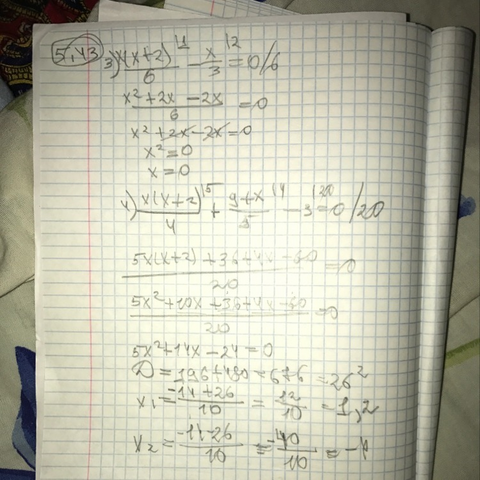 5,43
3) x(x+2)/6 |1 - x/3 |2 = 0 /6
x² + 2x - 2x / 6 = 0
x² + 2x - 2x = 0
x² = 0
x = 0
4) x(x+2)/4 |5 + 9+x/5 |4 - 3 |20 = 0 /20
5x(x+2) + 36 + 4x - 60 / 20 = 0
5x² + 10x + 36 + 4x - 60 / 20 = 0
5x² + 14x - 24 = 0
D = 196 + 480 = 676 = 26²
x1 = -14 + 26 / 10 = 12/10 = 1,2
x2 = -14 - 26 / 10 = -40/10 = -4